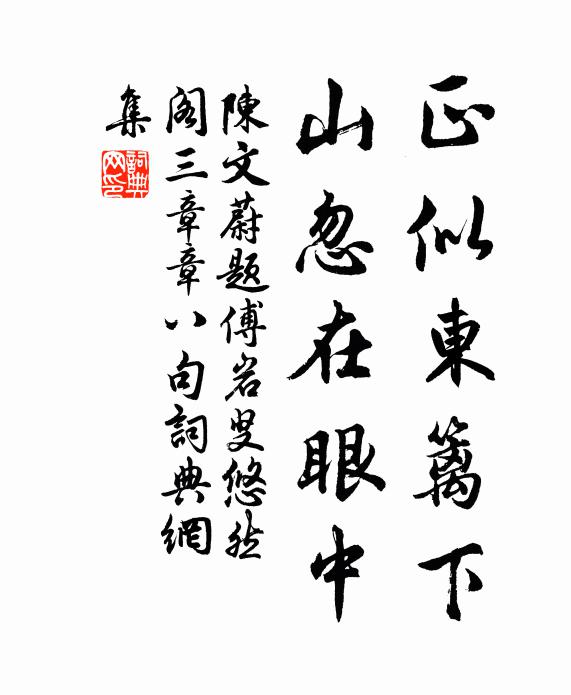 正似東籬下
山忽在眼中
陳文蔚題傅岩叟悠然
閣三章章八句詞典網
集
詞典
网印